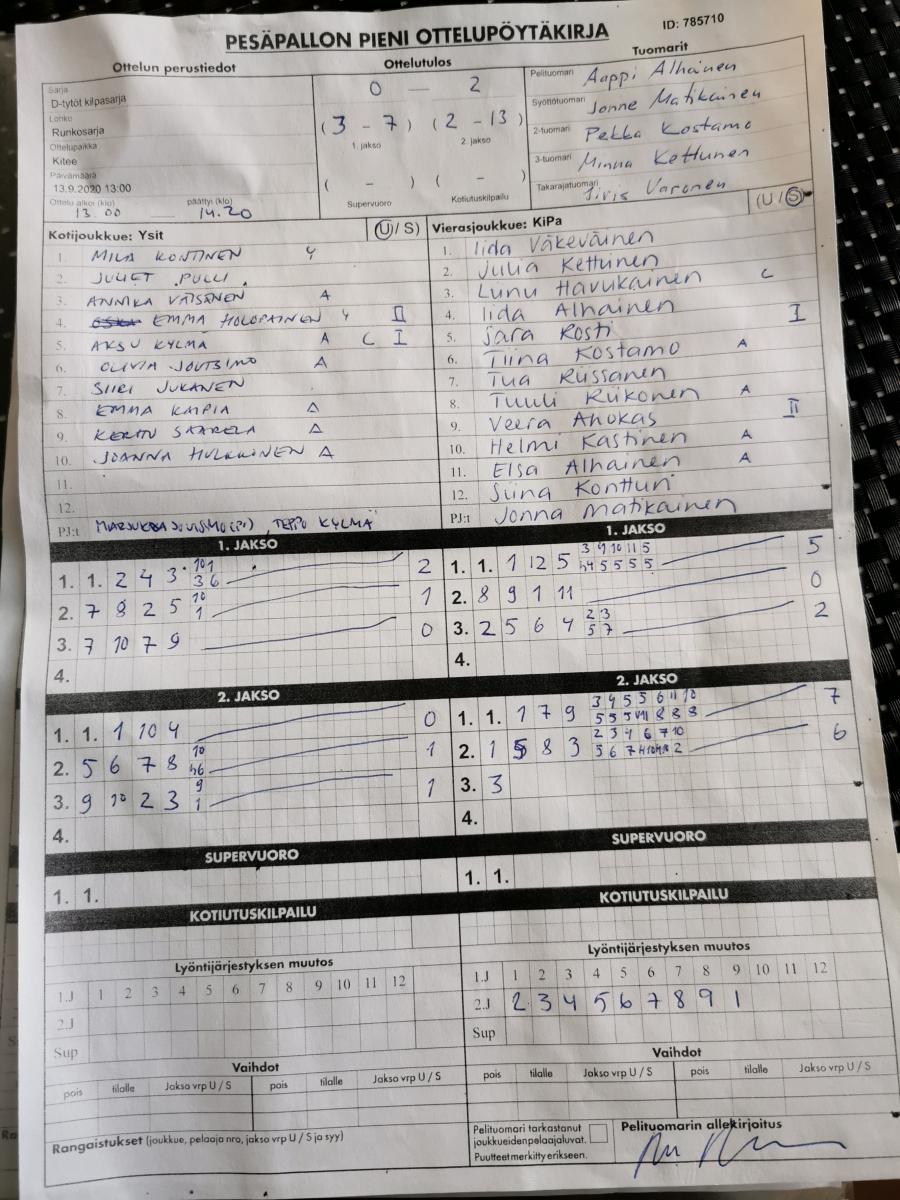 PESÄPALLON PIENI OTTELUPÖYTÄKIRJA
ID: 785710
Ottelun perustiedot
Sarja
D-tytöt kilpasarja
Lohko
Runkosarja
Ottelupaikka
Kitee
Päivämäärä
13.9.2020 13:00
Ottelu alkoi (klo) päättyi (klo)
13.00 14.20
Ottelutulos
0 — 2
(3 - 7) (2 - 13)
1. jakso 2. jakso
( - ) ( - )
Supervuoro Kotiutuskilpailu
Tuomarit
Pelituomari Aappi Alhainen
Syöttötuomari Jonne Matikainen
2-tuomari Pekka Kostamo
3-tuomari Minna Kettunen
Takarajatuomari Iiris Varonen
Kotijoukkue: Ysit (U / S)
1. MILA KONTINEN Y
2. JULIET PULLI
3. ANNIKA VÄISÄNEN A
4. EMMA HOLOPAINEN Y II
5. AKSU KYLMÄ A C I
6. OLIVIA JOUTSIMO A
7. SIIRI JUKANEN
8. EMMA KAIPIA A
9. SAARELA A
10. JOANNA A
11.
12.
PJ:t TEPPO KYLMÄ
Vierasjoukkue: KiPa (U / S)
1. Iida Väkeväinen
2. Julia Kettunen
3. Lunu Havukainen C
4. Iida Alhainen I
5. Sara Kosti
6. Tiina Kostamo A
7. Tua Riissanen
8. Tuuli Riikonen A
9. Veera Ahokas II
10. Helmi Kastinen A
11. Elsa Alhainen A
12. Siina Kontturi
PJ:t Jonna Matikainen
1. JAKSO
1. 1. 2 4 3 10 1 2
3 6
2. 7 8 2 5 10 1
1
3. 7 10 7 9 0
4.
1. JAKSO
1. 1. 1 12 5 3 9 10 11 5 5
5 5 5 5
2. 8 9 1 11 0
3. 2 5 6 4 2 3 2
5 7
4.
2. JAKSO
1. 1. 1 10 4 0
2. 5 6 7 8 10 1
3. 9 10 2 3 9 1
1
4.
2. JAKSO
1. 1. 1 7 9 3 4 5 5 6 11 10 7
2. 1 5 8 3 2 3 4 6 7 10 6
3. 3
4.
SUPERVUORO
1. 1.
SUPERVUORO
1. 1.
KOTIUTUSKILPAILU
KOTIUTUSKILPAILU
Lyöntijärjestyksen muutos
1.J 1 2 3 4 5 6 7 8 9 10 11 12
2.J
Sup
Lyöntijärjestyksen muutos
1.J 1 2 3 4 5 6 7 8 9 10 11 12
2.J 2 3 4 5 6 7 8 9 1
Sup
Vaihdot
pois tilalle Jakso vrp U / S pois tilalle Jakso vrp U / S
Vaihdot
pois tilalle Jakso vrp U / S pois tilalle Jakso vrp U / S
Rangaistukset (joukkue, pelaaja nro, jakso vrp U / S ja syy)
Pelituomari tarkastanut
joukkueiden pelaajaluvat.
Puutteet merkitty erikseen.
Pelituomarin allekirjoitus